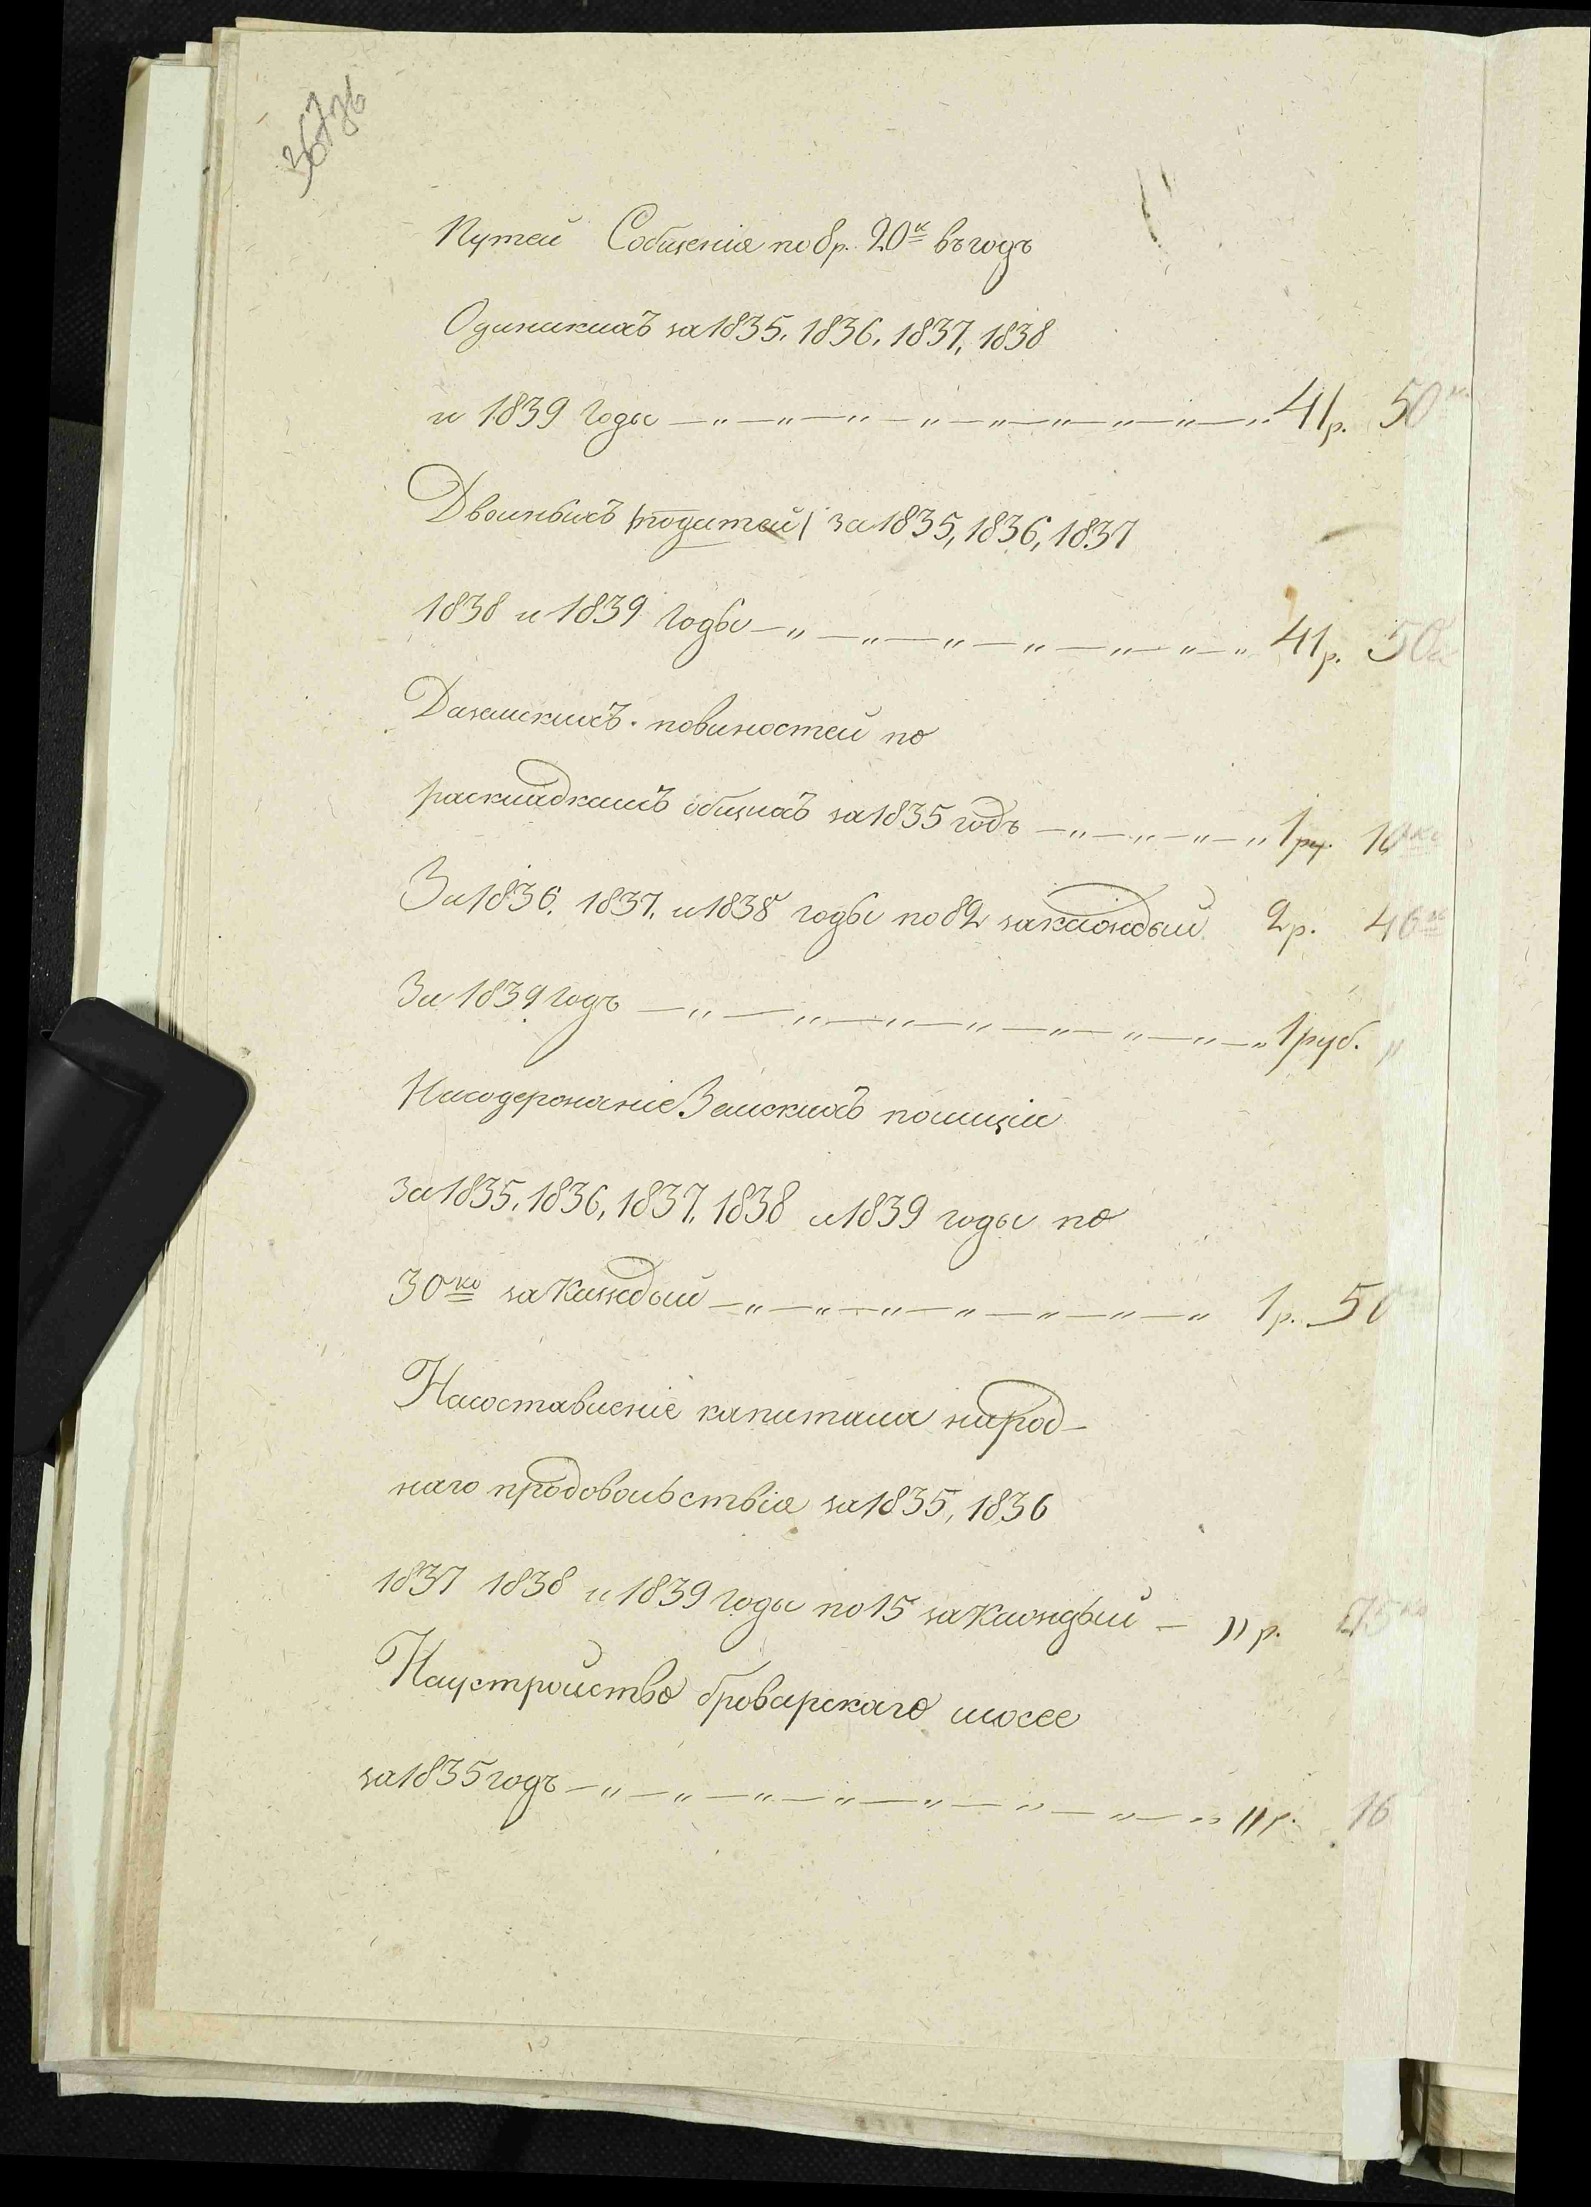 Путей Собщенія по 8р. 20к въ годъ
Одинакихъ за 1835. 1836. 1837, 1838
и 1839 годы —„—„—„—„—„—„—„—„—„ 41р. 50к
Двоиныхъ /подитей/ за 1835, 1836, 1837
1838 и 1839 годы —„—„—„—„—„—„—„ 41р. 50к
Даземскихъ повиностей по
раскладкамъ общихъ за 1835 годъ —„—„—„—„ 1ру. 10ко
За 1836. 1837. и 1838 годы по 82 закаждый 2р. 46к
За 1839 годъ —„—„—„—„—„—„—„—„ 1руб. „
Насодержаніе Земскихъ полиціи
за 1835. 1836, 1837, 1838 и 1839 годы по
30ко закаждый —„—„—„—„—„—„—„ 1р. 50
Насоставленіе капитала народ-
наго продовольствія за 1835, 1836
1837 1838 и 1839 годы по 15 закаждый — „р. 75ко
Наустройство броварскаго шосее
за 1835 годъ —„—„—„—„—„—„—„—„ „р. 16